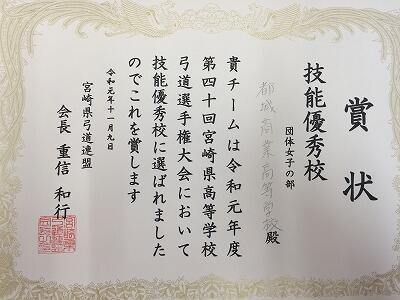 賞状
技能優秀校
団体女子の部
都城商業高等学校殿
貴チームは令和元年度
第四十回宮崎県高等学校
弓道選手権大会において
技能優秀校に選ばれました
のでこれを賞します
令和元年十一月九日
宮崎県弓道連盟
会長 重信 和行